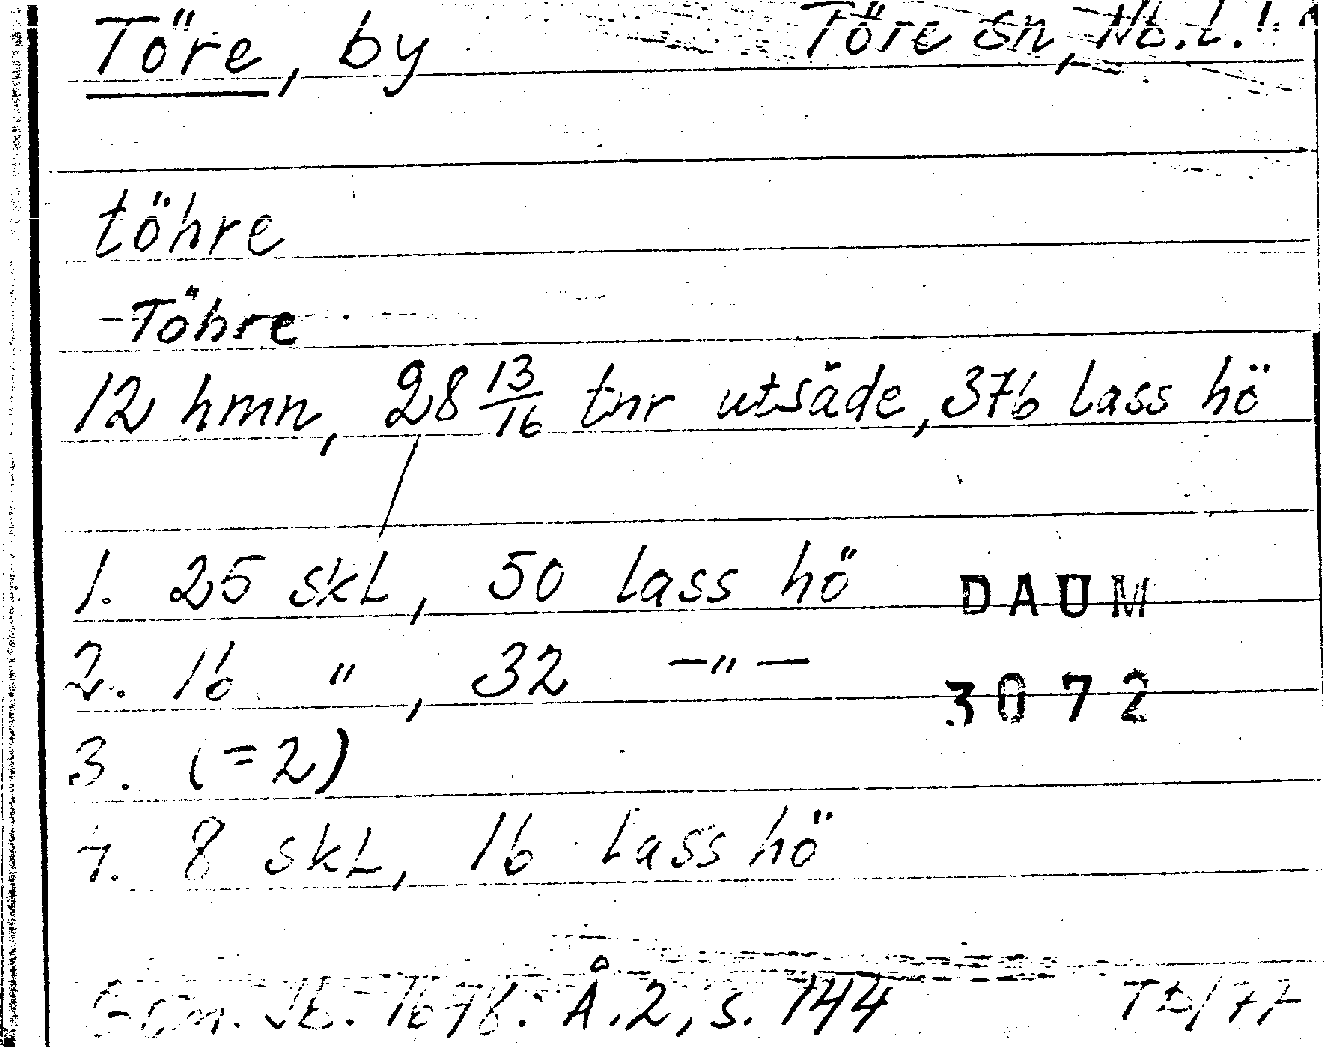 Töre, by Töre sn, Nb.l.
töhre
-Töhre
12 hmn, 28 13/16 tnr utsäde, 376 lass hö
1. 25 skl, 50 lass hö DAUM
2. 16 " , 32 —"— 3072
3. (=2)
4. 8 skl, 16 lass hö
Jb. 1678: Å.2, s. 144